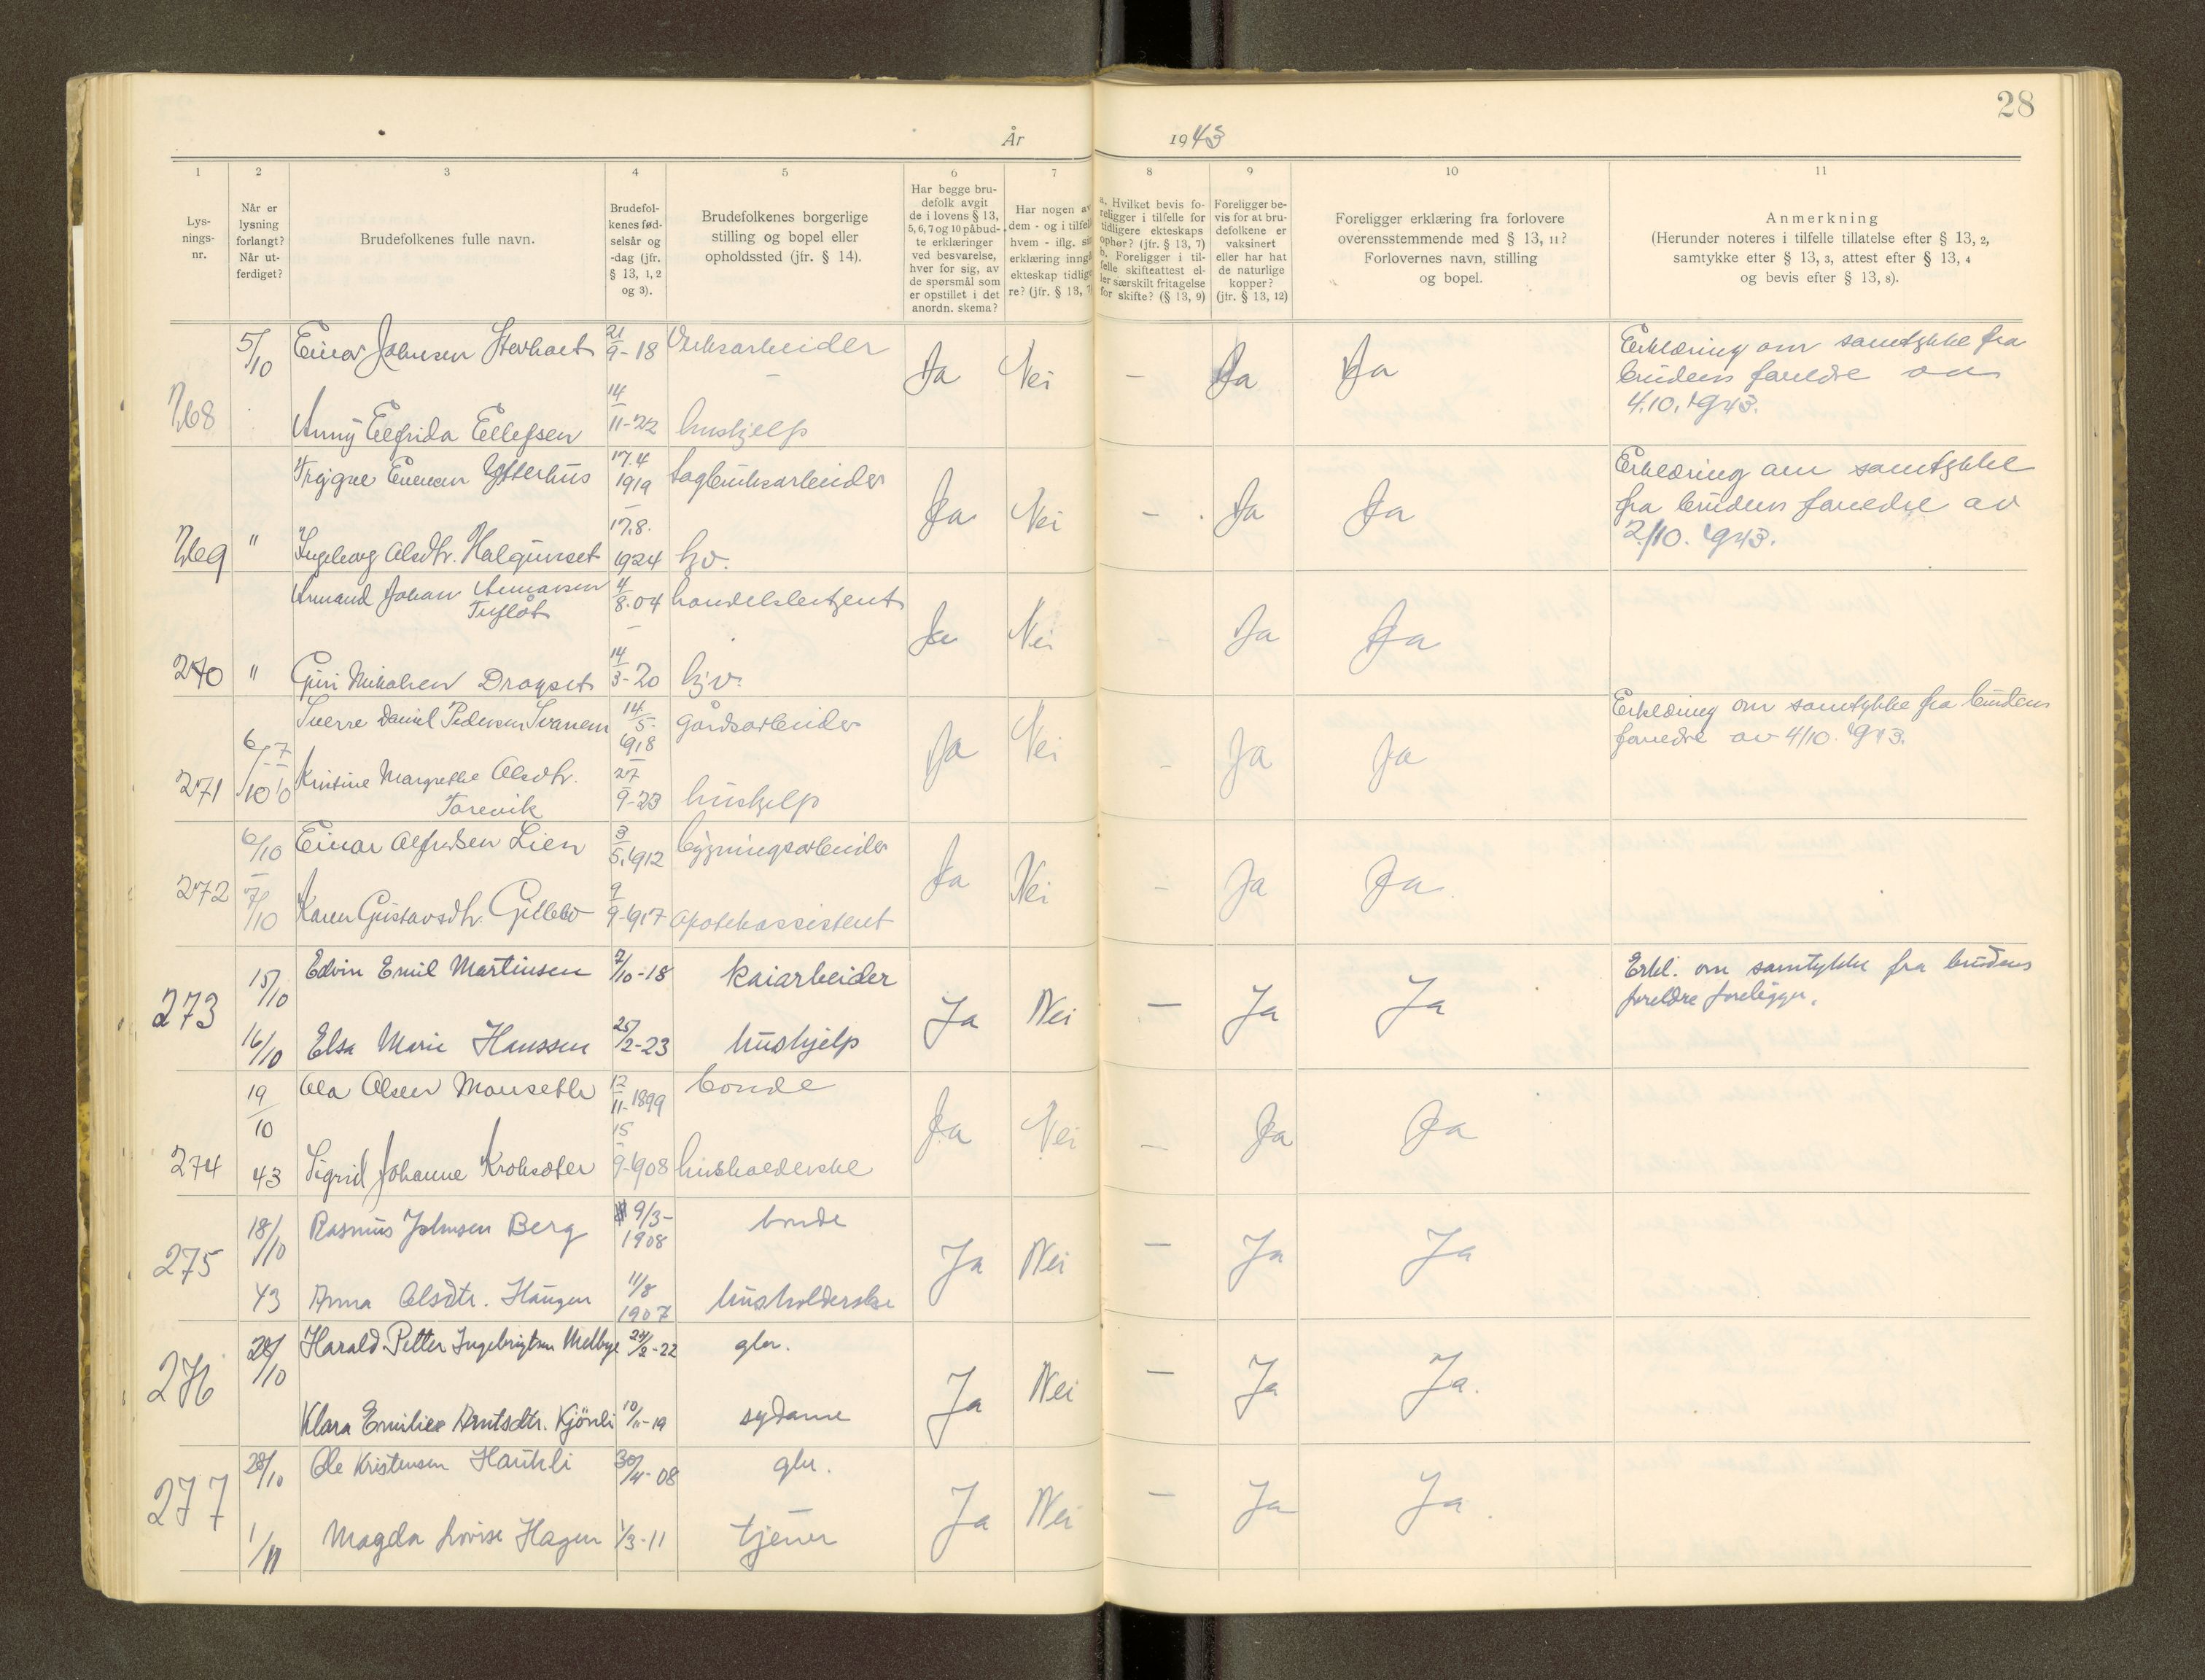 28
År 1943
1 2 3 4 5 6 7 8 9 10 11
Lys-
nings-
nr.
Når er
lysning
forlangt?
Når ut-
ferdiget?
Brudefolkenes fulle navn.
Brudefol-
kenes fød-
selsår og
-dag (jfr.
§ 13, 1, 2
og 3).
Brudefolkenes borgerlige
stilling og bopel eller
opholdssted (jfr. § 14).
Har begge bru-
defolk avgit
de i lovens § 13,
5, 6, 7 og 10 påbud-
te erklæringer
ved besvarelse,
hver for sig, av
de spørsmål som
er opstillet i det
anordn. skema?
Har nogen av
dem - og i tilfel
hvem - iflg. sin
erklæring inngå
ekteskap tidlig
re? (jfr. § 13, 7
a. Hvilket bevis fo-
religger i tilfelle for
tidligere ekteskaps
ophør? (jfr. § 13, 7)
b. Foreligger i til-
felle skifteattest el-
ler særskilt fritagelse
for skifte? (§ 13, 9)
Foreligger be-
vis for at bru-
defolkene er
vaksinert
eller har hat
de naturlige
kopper?
(jfr. § 13, 12)
Foreligger erklæring fra forlovere
overensstemmende med § 13, 11?
Forlovernes navn, stilling
og bopel.
Anmerkning
(Herunder noteres i tilfelle tillatelse efter § 13, 2,
samtykke etter § 13, 3, attest efter § 13, 4
og bevis efter § 13, 8).
268
5/10
Einar Johnsen
21/9-18
Ja Nei - Ja Ja
Erklæring om samtykke fra
brudens foreldre av
4.10.1943.
Anny Elfrida Ellefsen
14/11-22
hushjelp
269
"
Trygve Evensen Ytterhus
17.4
1919
sagbruksarbeider
Ja Nei - Ja Ja
Erklæring om samtykke
fra brudens foreldre av
2/10. 1943.
Ingeborg Olsdtr. Halgunset
17.8.
1924
hv.
270
"
Armand Johan
4/8.04
Ja Nei - Ja Ja
Guri Mikalsen Dragset
14/3-20
hjv.
271
6/10 7/10
Sverre Daniel Pedersen Svanem
14/5-
1918
gårdsarbeider
Ja Nei - Ja Ja
Erklæring om samtykke fra brudens
foreldre av 4/10. 1943.
Kristine Margrethe Olsdtr.
Torevik
27/9-23
hushjelp
272
6/10
-
7/10
Einar Alfredsen Lien
3/5.1912
bygningsarbeider
Ja Nei - Ja Ja
Karen Gustavsdtr. Gillebo
9/9-1917
apotekassistent
273
15/10
16/10
Edvin Emil Martinsen
7/10-18
kaiarbeider
Ja Nei - Ja Ja
Erkl. om samtykke fra brudens
foreldre foreligger.
Elsa Marie Hanssen
25/2-23
hushjelp
274
19/10
43
Ola Olsen Mauseth
12/11-1899
bonde
Ja Nei - Ja Ja
Sigrid Johanne
15/9-1908
husholderske
275
18/10
43
Rasmus Johnsen Berg
9/3-
1908
bonde
Ja Nei - Ja Ja
Anna Olsdtr. Haugen
11/8
1907
husholderske
276
28/10
Harald Petter Ingebrigtsen Melbye
24/2-22
gbr.
Ja Nei - Ja Ja.
Klara Emilie Arntsdtr. Kjönli
10/11-19
sydame
277
28/10
1/11
Ole Kristensen Haukli
30/4-08
gbr.
Ja Nei - Ja Ja.
Magda Lovise Hagen
1/3-11
tjener